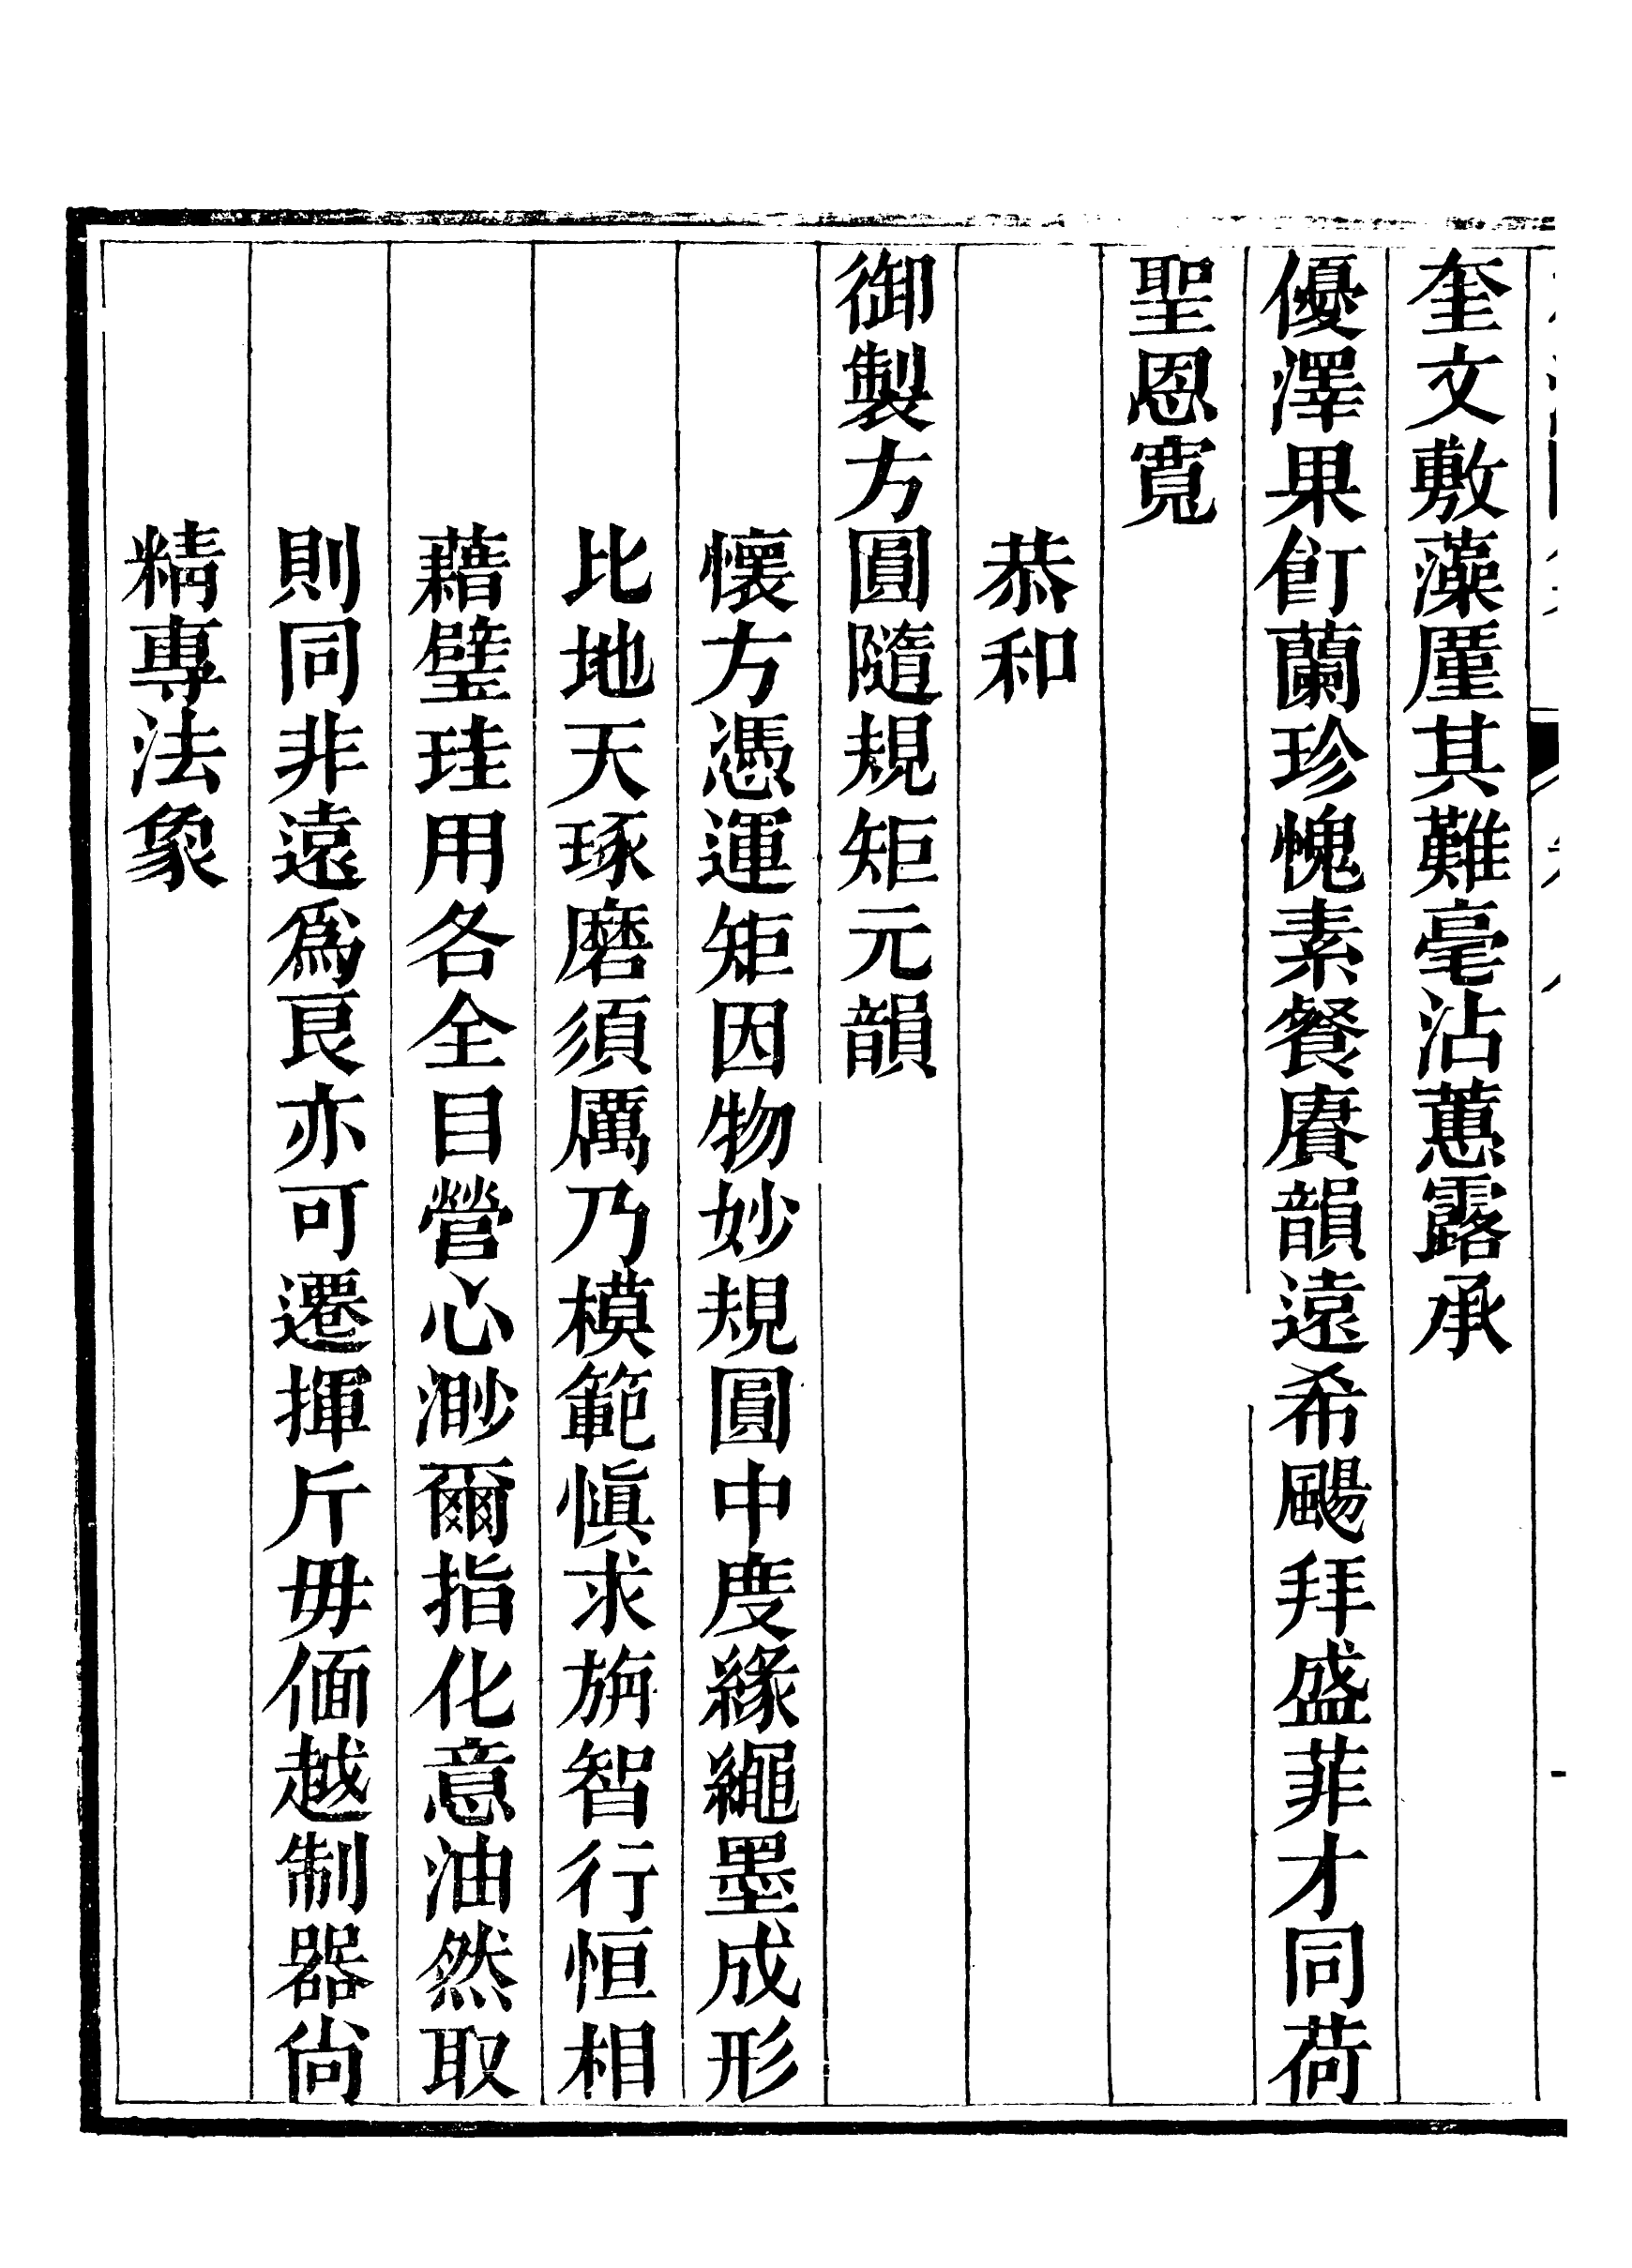 奎文敷藻廑其難毫沾蕙露承
優澤果飣蘭珍愧素餐賡韻遠希颺拜盛菲才同荷
聖恩寬
恭和
御製方圓隨規矩元韻
懷方憑運矩因物妙規圓中度緣繩墨成形
比地天琢磨須厲乃模範愼求旃智行恒相
藉璧珪用各全目營心渺爾指化意油然取
則同非遠爲良亦可遷揮斤毋偭越制器尙
精專法象